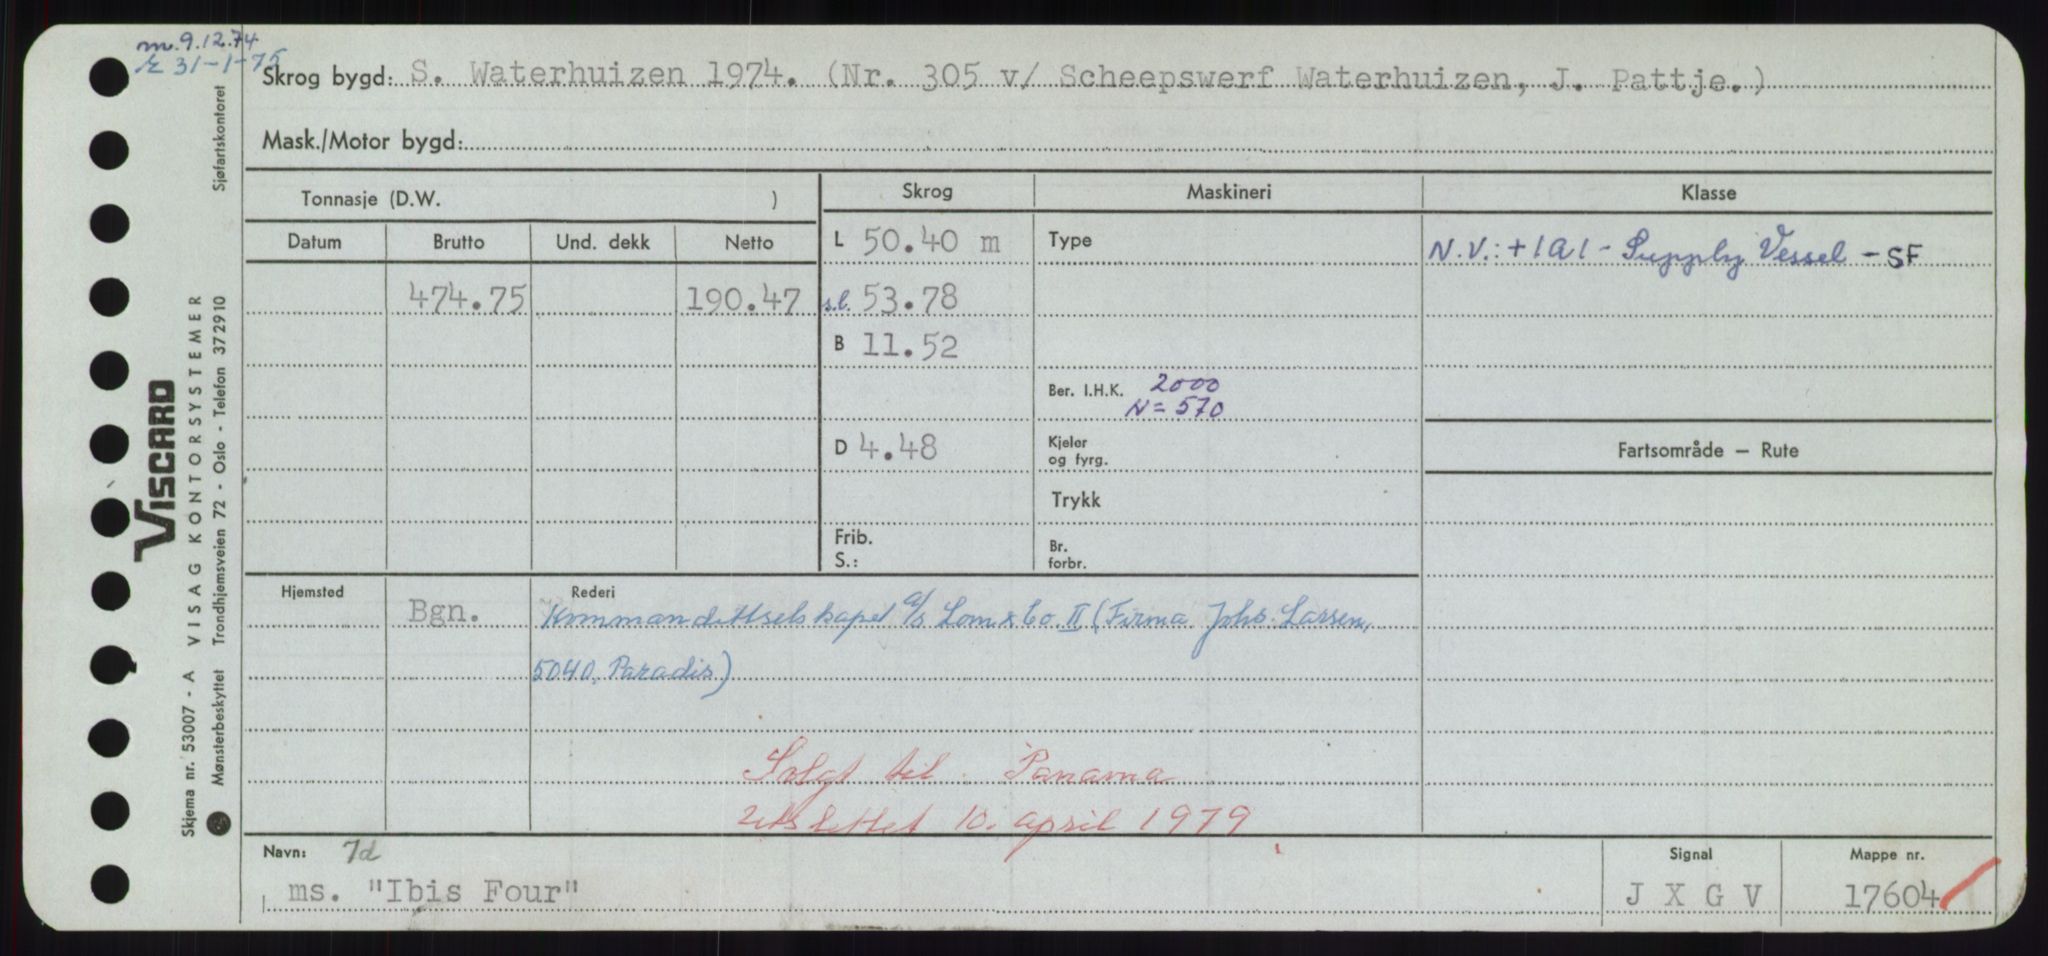 m. 9.12.74
r 31-1-75
Skrog bygd: S. Waterhuizen 1974. (Nr. 305 v/ Scheepswerf Waterhuizen, J. Pattje.)
Mask./Motor bygd:
Tonnasje (D.W. )
Skrog Maskineri Klasse
Datum Brutto Und. dekk Netto
L 50.40 m Type N.V.: +1A1 - Supply Vessel - SF
474.75 190.47 s.l. 53.78
B 11.52
Ber. I.H.K. 2000
N = 570
D 4.48 Kjeler og fyrg. Fartsområde — Rute
Trykk
Frib. S.: Br. forbr.
Hjemsted Bgn. Rederi
Kommandittselskapet a/s Lom & Co. II (Firma Johs. Larsen,
5040, Paradis)
Solgt til Panama
slettet 10. april 1979
Navn: 7d Signal Mappe nr.
ms. "Ibis Four" J X G V 17604
VISCARD
Skjema nr. 53007 - A VISAG KONTORSYSTEMER
Mønsterbeskyttet Trondhjemsveien 72 - Oslo - Telefon 372910 Sjøfartskontoret